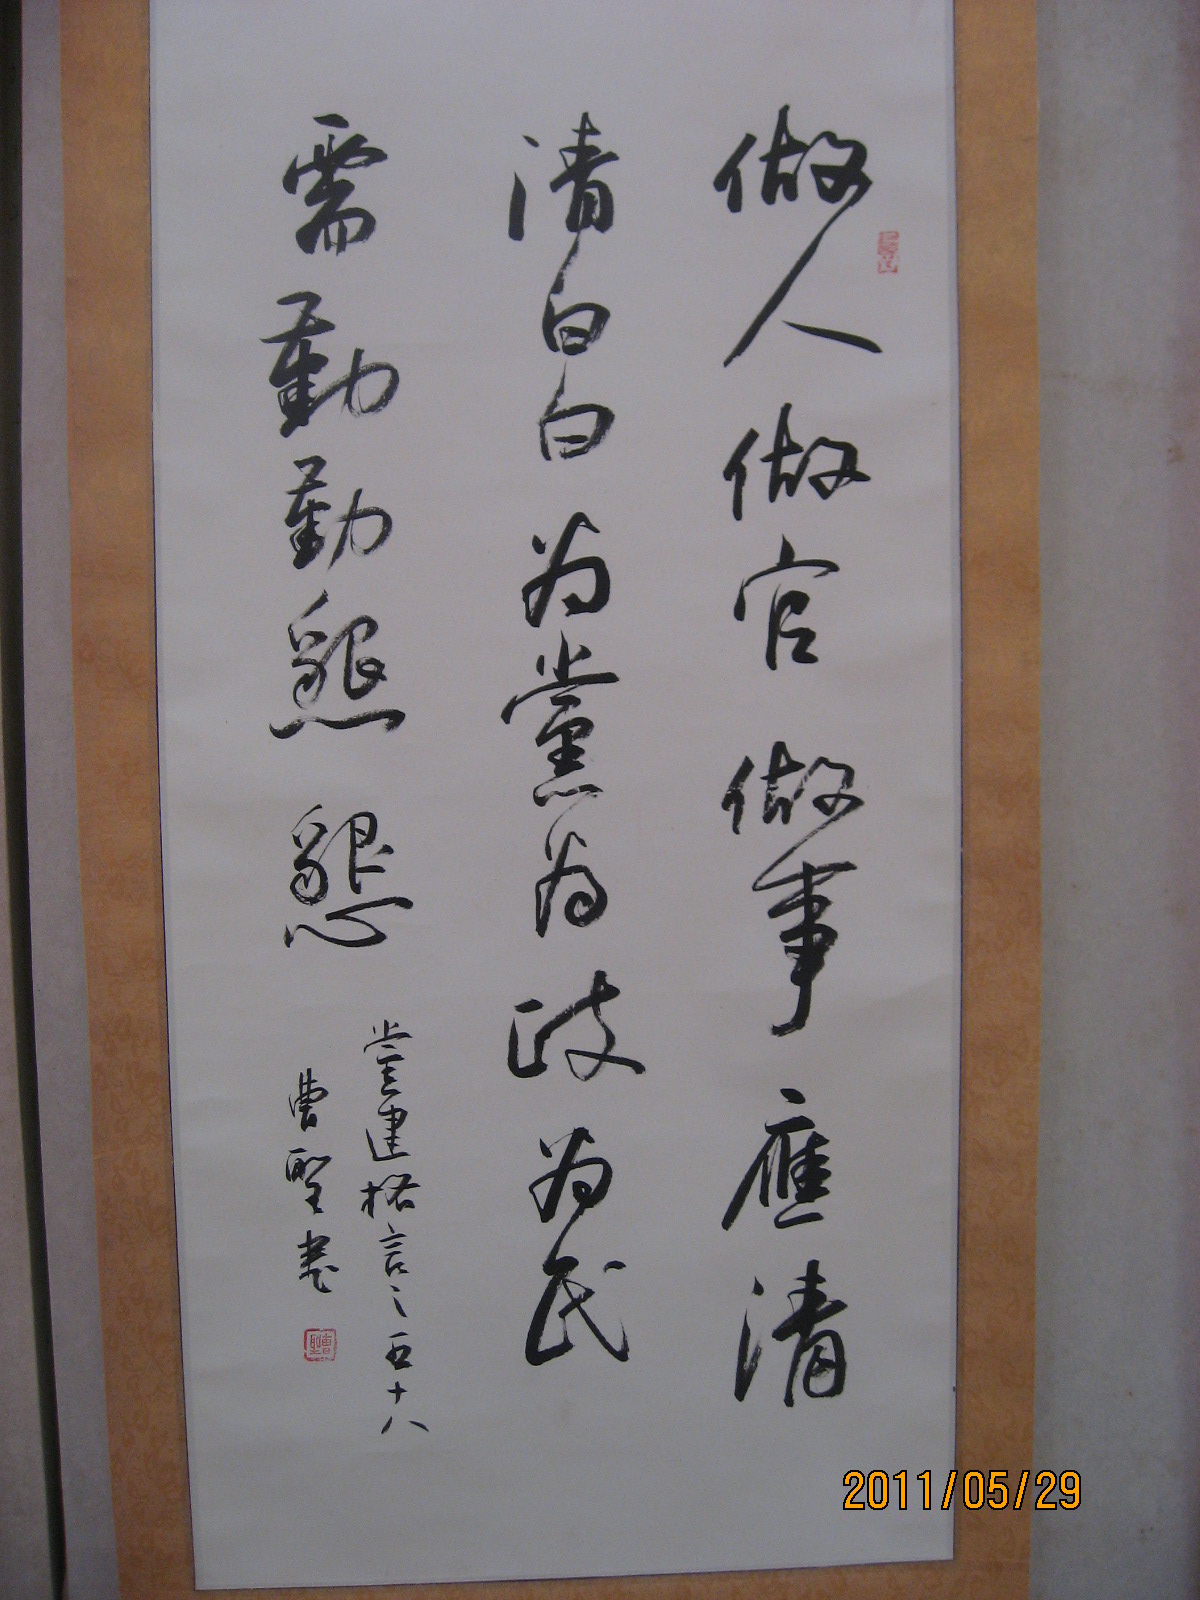 做人做官做事應清
清白白为黨为政为民
需勤勤懇懇
党建格言之五十八
曹聖书
2011/05/29